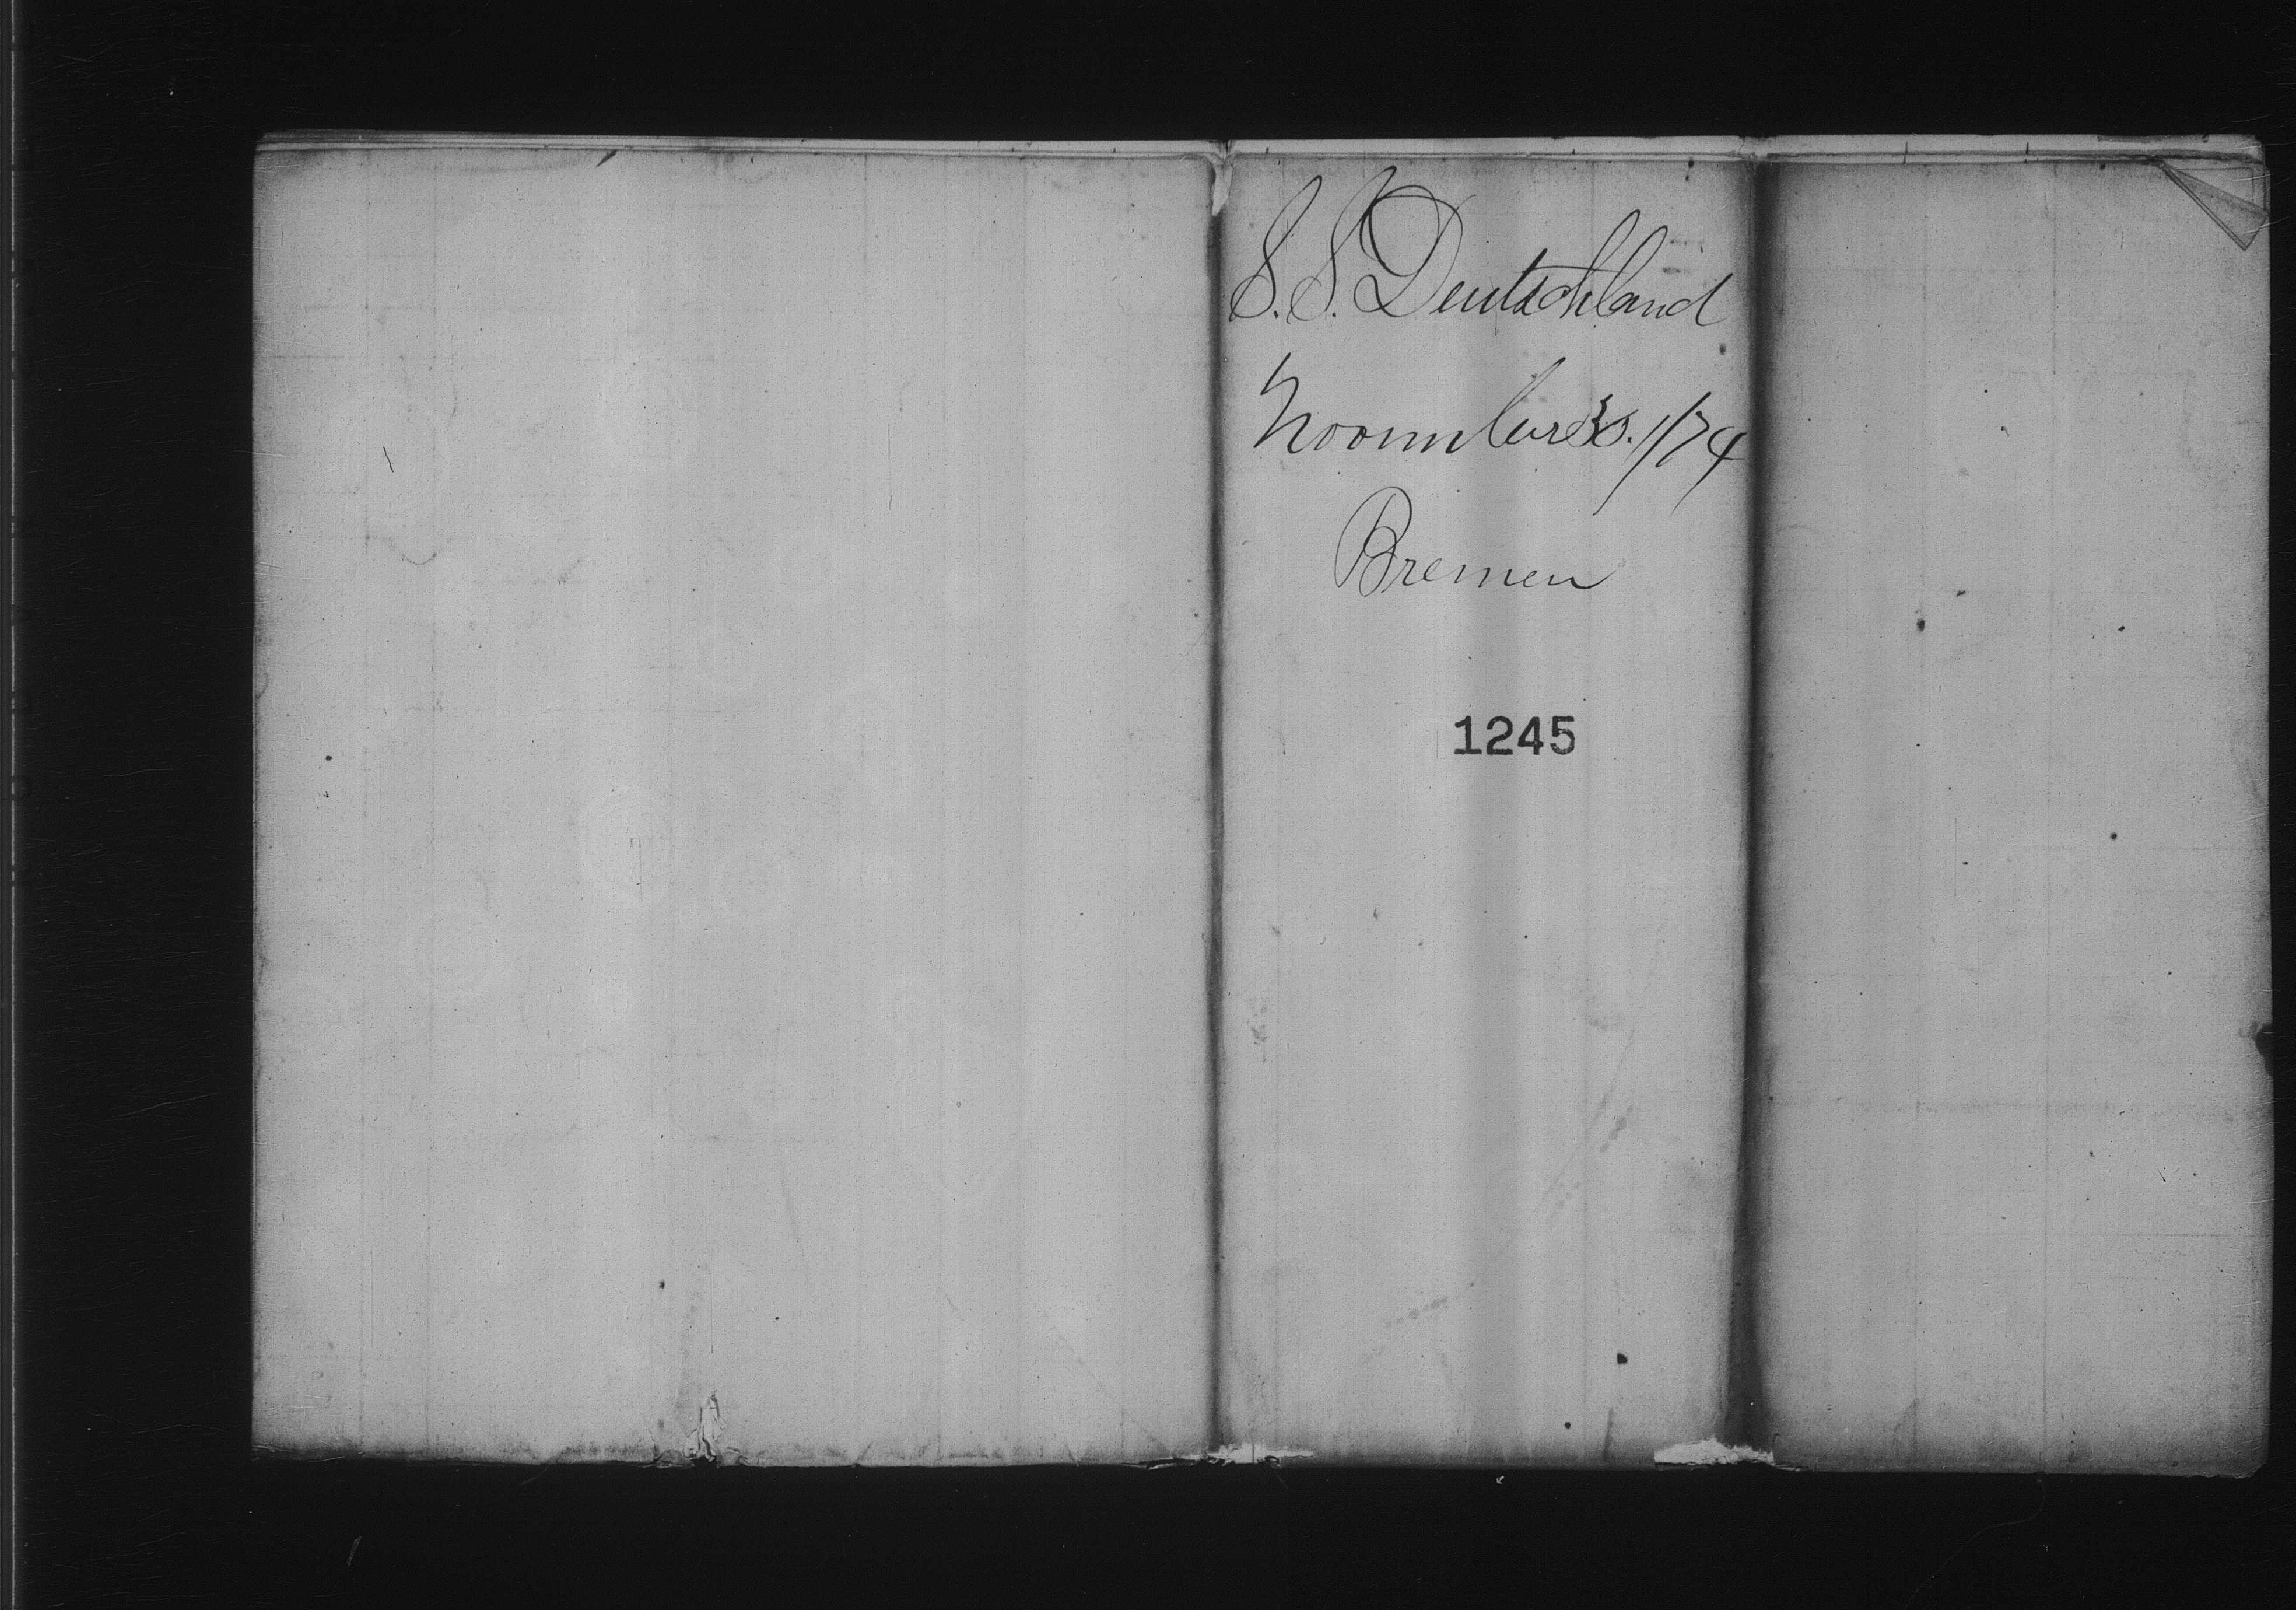 S.S. Deutschland
November 1/74
Bremen
1245